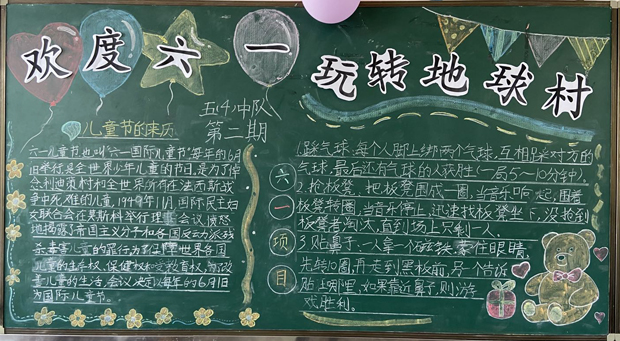 欢度六一
玩转地球村
五(4)中队
第二期
儿童节的来历
六一儿童节,也叫六一国际儿童节,每年的6月
1日举行,是全世界少年儿童的节日,是为了悼
念利迪策村村和全世界所有在法西斯战
争中死难的儿童,1949年11月国际民主妇
女联合会在莫斯科举行理事会议,愤怒
地揭露了帝国主义分子和各国反动派残
杀毒害儿童的罪行,为了保障世界各国
儿童的生存权、保健权和受教育权,为改
善儿童的生活,会议决定每年的6月1日
为国际儿童节。
六一项目
1.踩气球:每个人脚上绑两个气球,互相踩对方的
气球,最后还有气球的人获胜(一局5~10分钟).
2.抢板凳:把板凳围成一圈,当音乐响起,围着
板凳转圈,当音乐停止,迅速找板凳坐下,没抢到
板凳者淘汰,直到场上只剩一人.
3.贴鼻子:一人拿一个磁铁,蒙住眼睛,
先转10圈,再走到黑板前,另一个告诉
贴在哪里,如果靠近鼻子,则游
戏胜利。